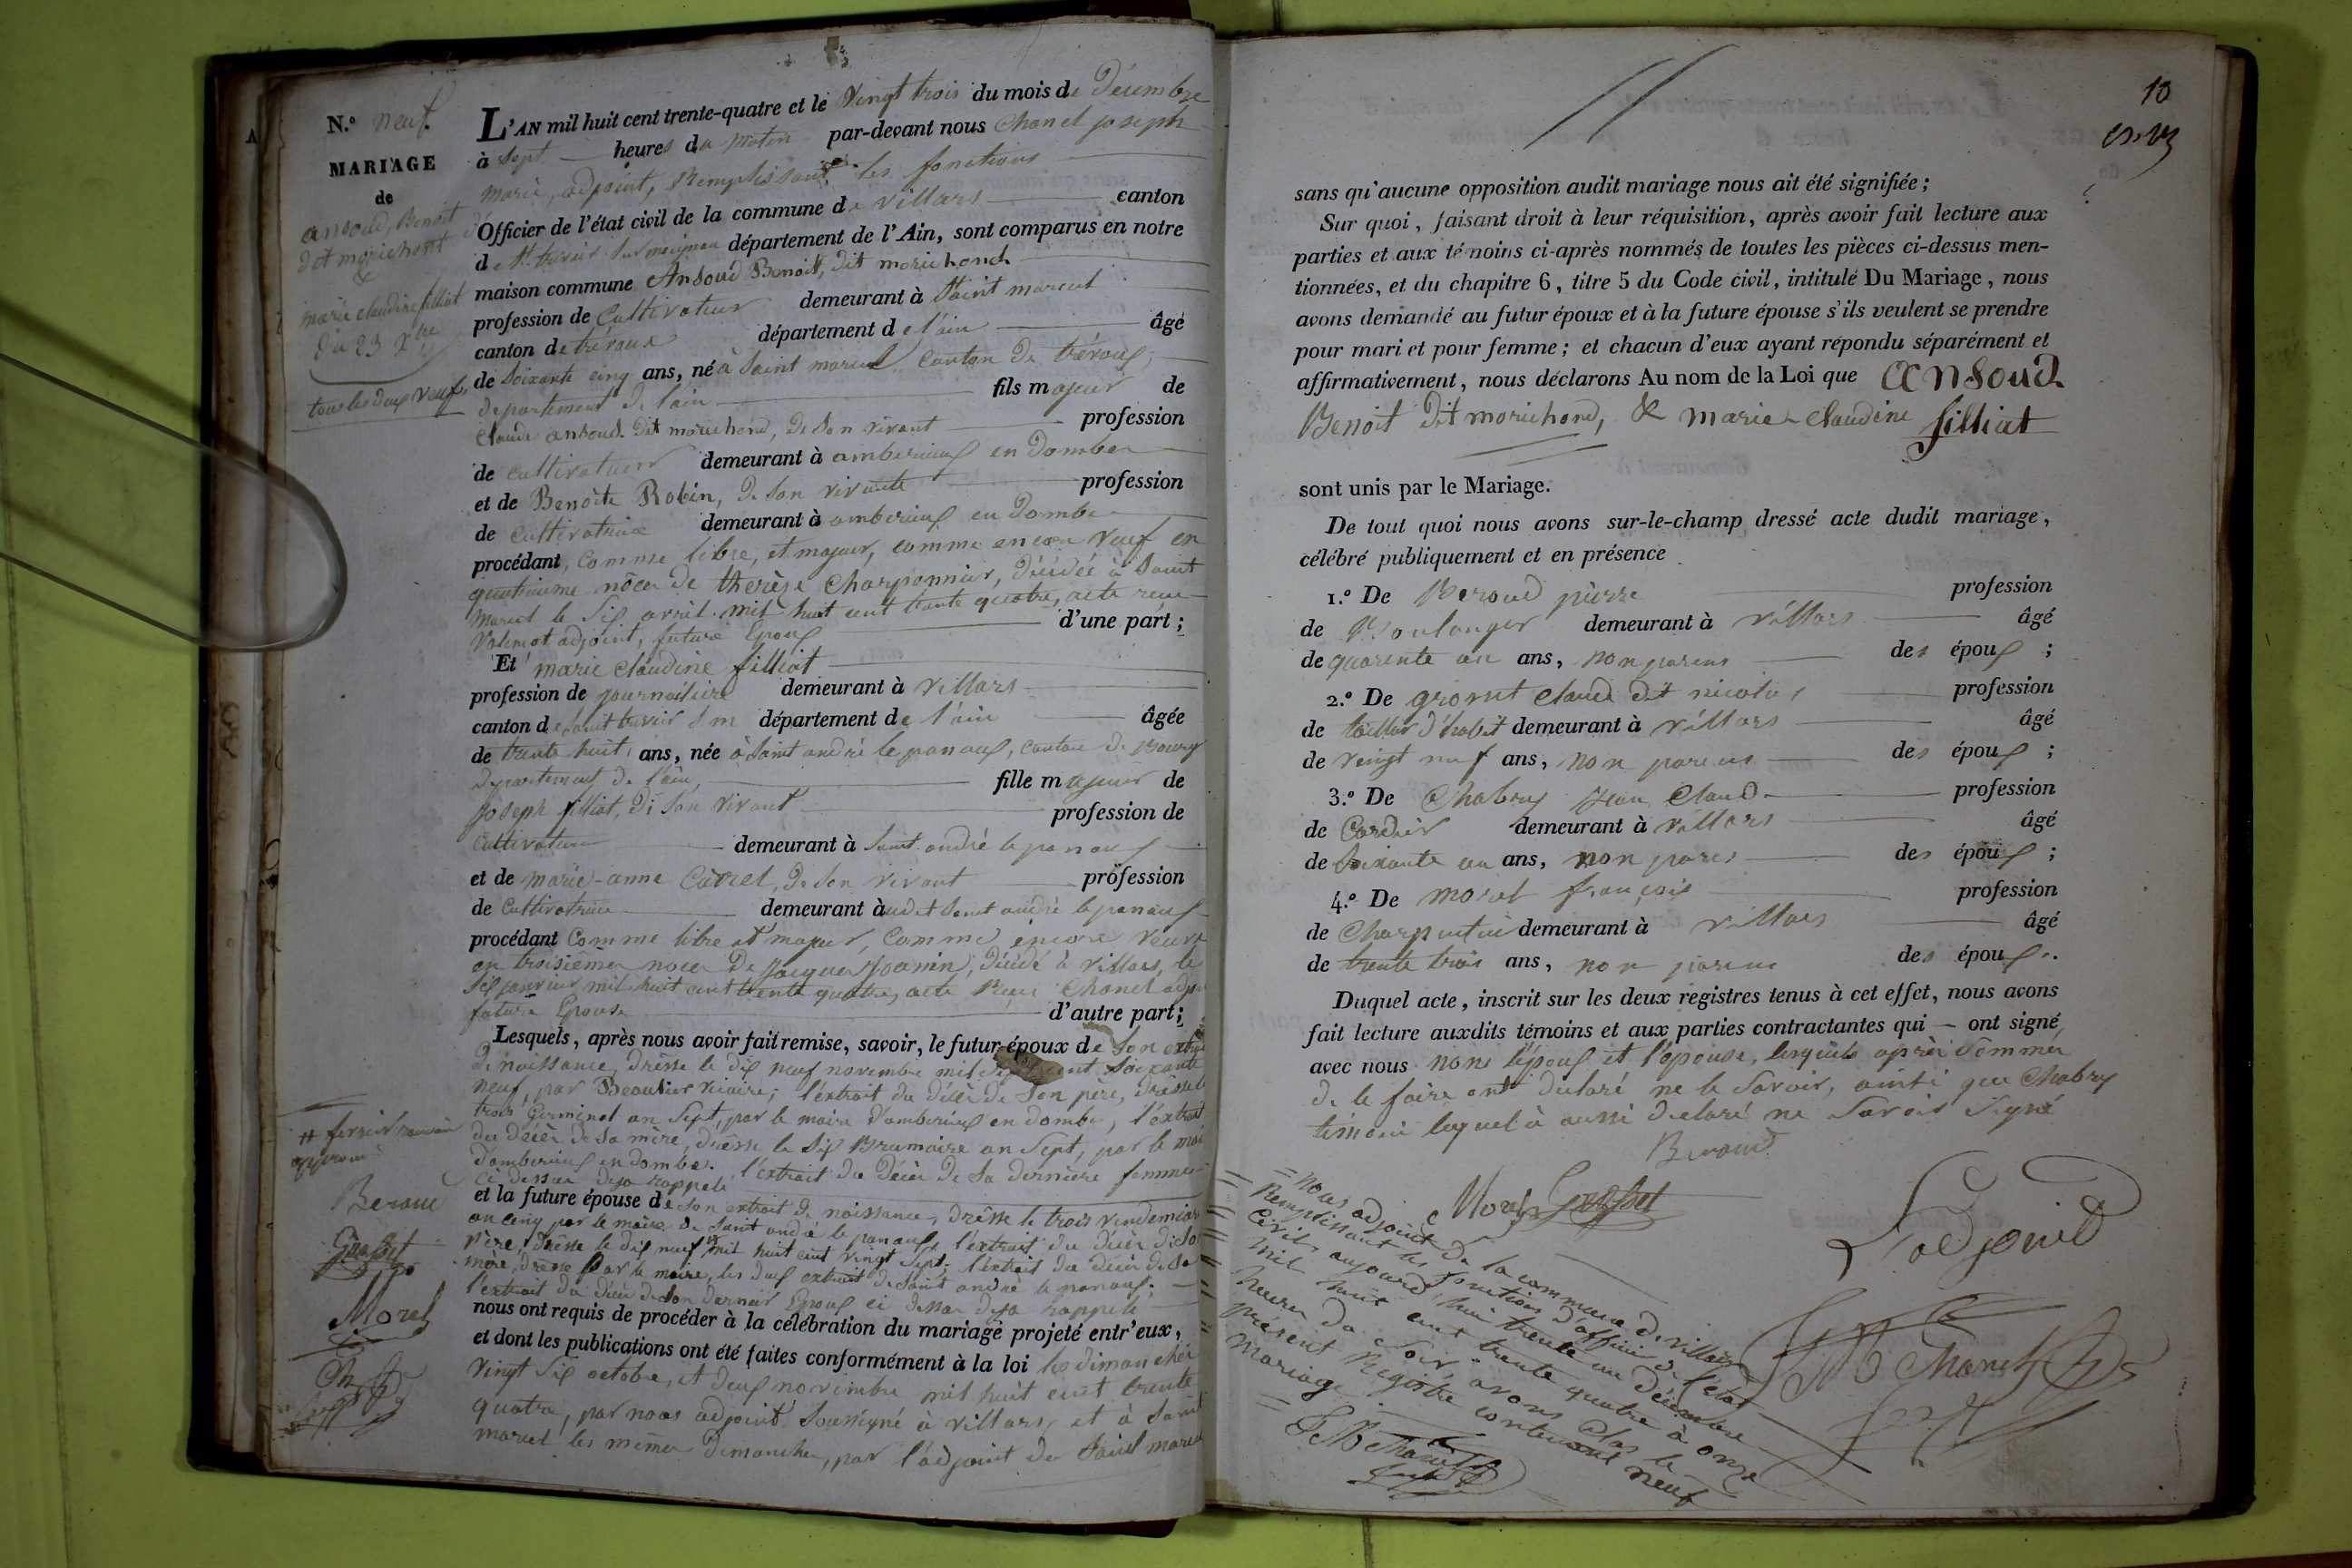 N.º neuf.
MARIAGE
de
ansoud, Benoit
dit morichond
&
marie claudine filliat
du 23 Xbre
tous les deux veufs
L'AN mil huit cent trente-quatre et le vingt trois du mois de Décembre
à sept heures du matin par-devant nous Chanel joseph
marie, adjoint, Remplissant les fonctions
d'Officier de l'état civil de la commune de villars canton
de St. trivier sur moignan département de l'Ain, sont comparus en notre
maison commune Ansoud Benoit, dit morichond
profession de Cultivateur demeurant à Saint marcel
canton de trévoux département de l'ain âgé
de soixante cinq ans, né à Saint marcel canton de trévoux,
departement de l'ain fils majeur de
Claude ansoud dit morichond, de son vivant profession
de cultivateur demeurant à amberieux en Dombes
et de Benoite Robin, de son vivante profession
de cultivatrice demeurant à amberieux en Dombe
procédant, comme libre, et majeur, comme encore veuf en
quatrieme nôces de therèse Charponnier, décédée à Saint
marcel le six avril mil huit cent trente quatre, acte reçu
adjoint, future Epoux d'une part;
Et marie claudine filliat
profession de journaliere demeurant à villars
canton de saint trivier s m département de l'ain âgée
de trente huit ans, née à Saint andré le panoux, canton de Bourg
departement de l'ain fille majeur de
joseph filliat, de son vivant profession de
cultivateur demeurant à saint andré le panoux
et de marie-anne Cavret, de son vivant profession
de Cultivatrice demeurant àudit saint andré le panoux
procédant comme libre et majeur, comme encore veuve
en troisième noces de jacques joanin, décédé à villars, le
six janvier mil huit cent trente quatre, acte Reçu Chanel adjoint
future Epouse d'autre part;
Lesquels, après nous avoir fait remise, savoir, le futur époux de son extrait
de naissance, drêsse le dix neuf novembre mil sept cent soixante
neuf, par Beaulier vicaire; l'extrait du décès de son père, drêsse le
trois Germinal an sept, par le maire d'amberieux en dombe, l'extrait
du décès de sa mère, drêsse le six Brumaire an sept, par le maire
d'amberieux en dombe. l'extrait du décès de sa dernière femme
ci dessus deja rappelé
et la future épouse de son extrait de naissance, drêsse le trois vendemiaire
an cinq par le maire de saint andré le panoux, l'extrait du décès de son
père, drêsse le dix neuf mil huit cent vingt sept; l'extrait du décès de sa
mère, drêsse par le maire, les deux extrait de saint andré le panoux;
l'extrait du décès de son dernier Epoux ci dessus deja rappelé
nous ont requis de procéder à la célébration du mariage projeté entr'eux,
et dont les publications ont été faites conformément à la loi les dimanches
vingt six octobre, et deux novembre mil huit cent trente
quatre, par nous adjoint soussigné à villars, et à saint
marcel les mêmes dimanches, par l'adjoint de Saint marcel
approuvé
Beroud
Grosset
Morel
10
sans qu'aucune opposition audit mariage nous ait été signifiée;
Sur quoi, faisant droit à leur réquisition, après avoir fait lecture aux
parties et aux témoins ci-après nommés de toutes les pièces ci-dessus men-
tionnées, et du chapitre 6, titre 5 du Code civil, intitulé Du Mariage, nous
avons demandé au futur époux et à la future épouse s'ils veulent se prendre
pour mari et pour femme; et chacun d'eux ayant répondu séparément et
affirmativement, nous déclarons Au nom de la Loi que ansoud
Benoit dit morichond, & marie claudine filliat
sont unis par le Mariage.
De tout quoi nous avons sur-le-champ dressé acte dudit mariage,
célébré publiquement et en présence
1.º De Beroud pierre profession
de Boulanger demeurant à villars âgé
de quarente un ans, non parens des époux;
2.º De Grosset Claude dit nicolas profession
de tailleur d'habit demeurant à villars âgé
de vingt neuf ans, non parens des époux;
3.º De Chabry jean Claud profession
de Cordier demeurant à villars âgé
de soixante un ans, non parens des époux;
4.º De morel françois profession
de Charpentier demeurant à villars âgé
de trente trois ans, non parens des époux.
Duquel acte, inscrit sur les deux registres tenus à cet effet, nous avons
fait lecture auxdits témoins et aux parties contractantes qui – ont signé
avec nous non l'époux et l'epouse, lesquels après sommés
de le faire ont declaré ne le savoir, ainsi que Chabry
témoin lequel à aussi declaré ne savoir signé
Beroud
Morel Grosset
L'adjoint
J M Chanel
nous adjoint de la commune de villars
Remplissant les fonctions d'officier de l'état
Civil aujourd'hui trente un décembre
mil huit cent trente quatre à onze
heures du soir, avons clos le
présent Registre contenant neuf
mariage
J M Chanel